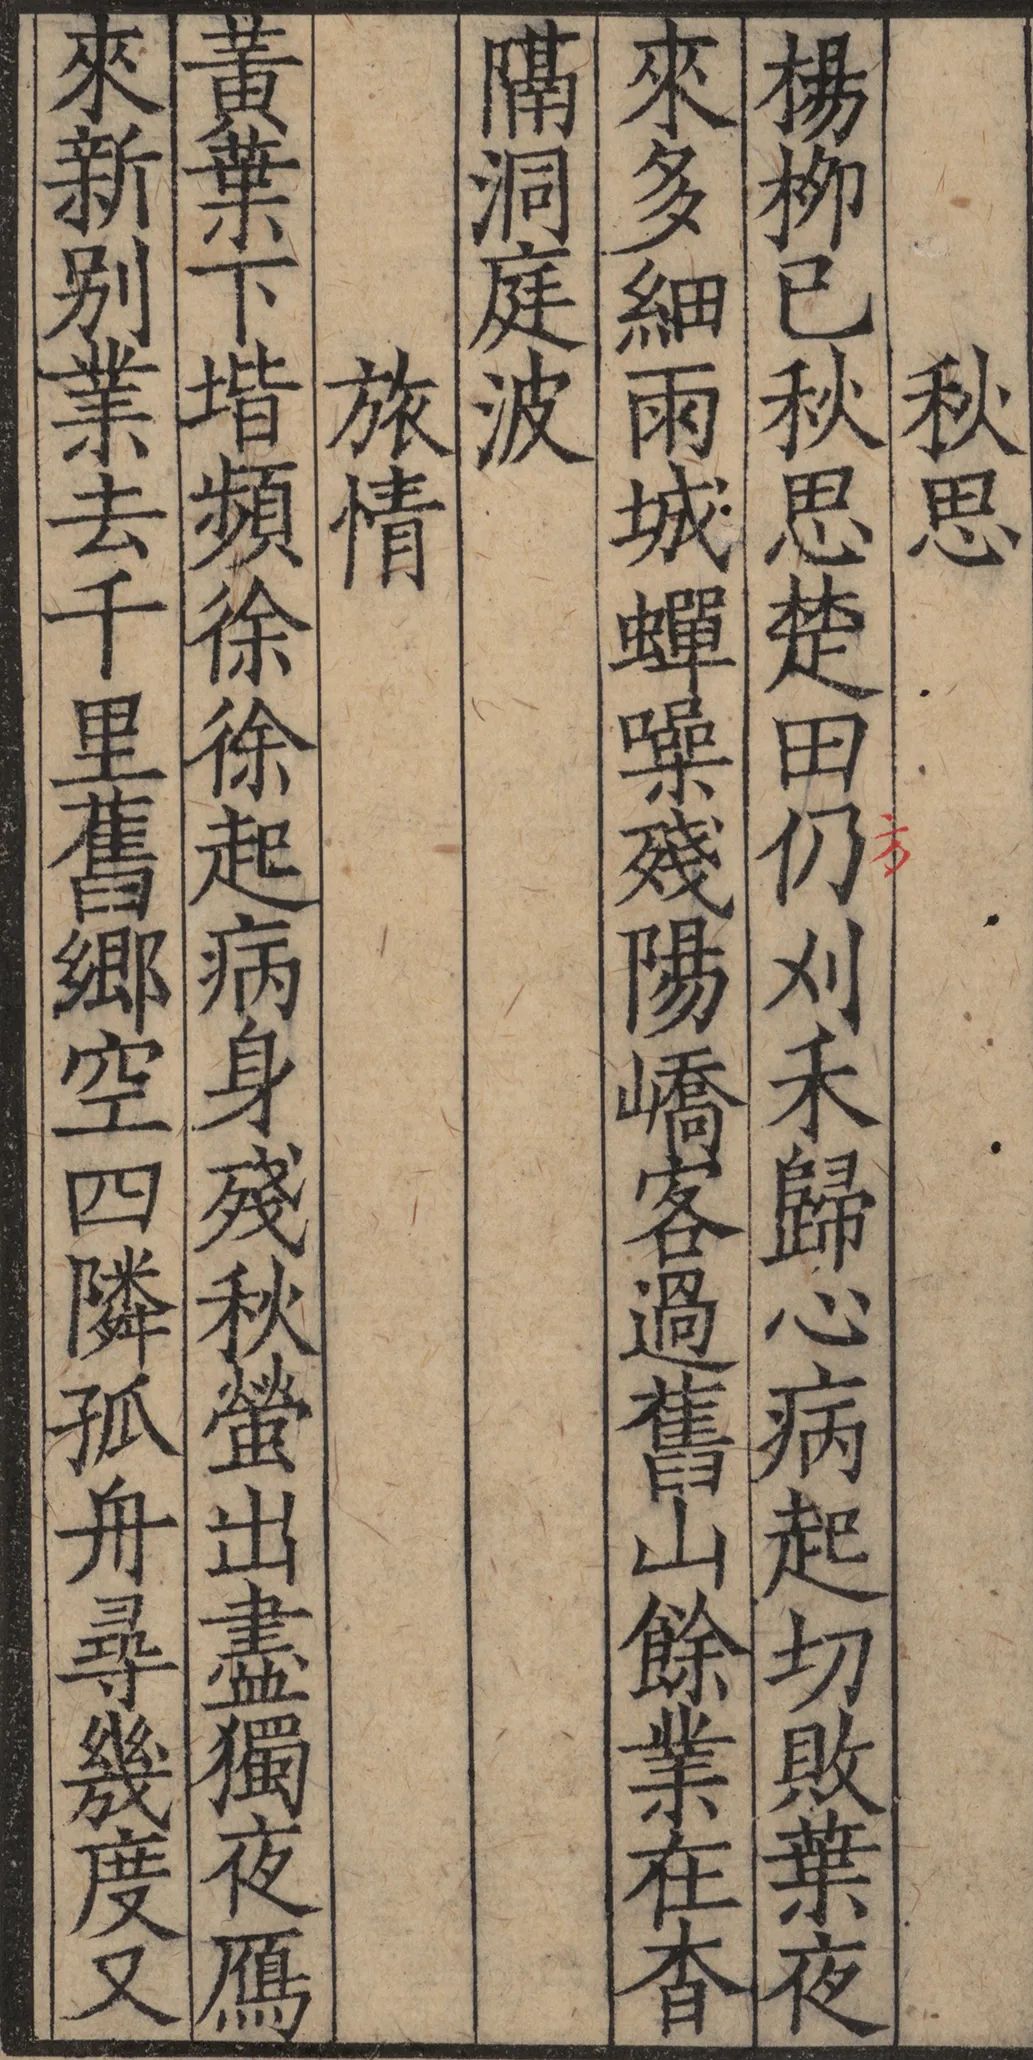 秋思
楊栁已秋思楚田仍刈禾歸心病起切敗葉夜
方
來多細雨城蟬噪殘陽嶠客過舊山餘業在杳
隔洞庭波
旅情
黃葉下堦頻徐徐起病身殘秋螢出盡獨夜鴈
來新别業去千里舊鄉空四隣孤舟尋幾度又